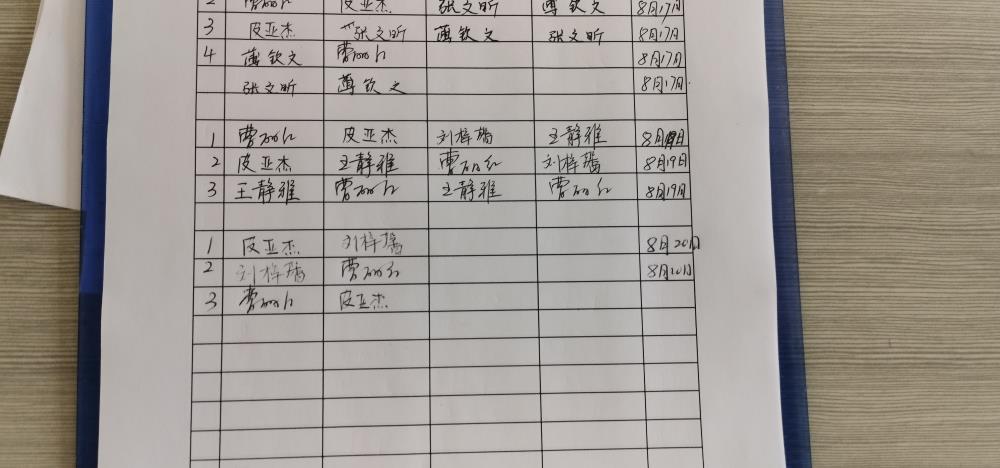 2 曹丽红 皮亚杰 张文昕 薄钦文 8月17日
3 皮亚杰 张文昕 薄钦文 张文昕 8月17日
4 薄钦文 曹丽红 8月17日
张文昕 薄钦文 8月17日
1 曹丽红 皮亚杰 刘梓璐 王静雅 8月19日
2 皮亚杰 王静雅 曹丽红 刘梓璐 8月19日
3 王静雅 曹丽红 王静雅 曹丽红 8月19日
1 皮亚杰 刘梓璐 8月20日
2 刘梓璐 曹丽红 8月20日
3 曹丽红 皮亚杰